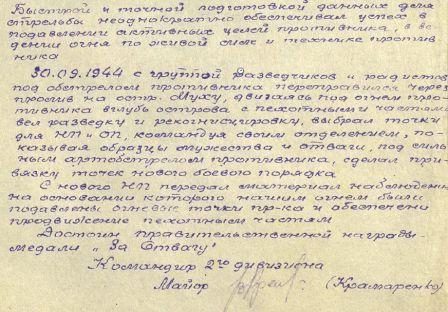 Быстрой и точной подготовкой данных для
стрельбы неоднократно обеспечивал успех в
подавлении активных целей противника, в ве
дении огня по живой силе и технике против
ника
30.09.1944 с группой разведчиков и радистов
под обстрелом противника переправился через
пролив на остр. Муху, двигаясь под огнем про
тивника вглубь острова с пехотными частями
вел разведку и рекогносцировку, выбрал точки
для НП и ОП, командуя своим отделением, по-
казывая образцы мужества и отваги, под силь
ным артобстрелом противника, сделал при-
вязку точек нового боевого порядка
С нового НП передал материал наблюдения
на основании которого нашим огнем были
подавлены огневые точки пр-ка и обеспечени
продвижение пехотным частям
Достоин правительственной награды-
медали „За Отвагу"
Командир 2го дивизиона
Майор (Крамаренко)